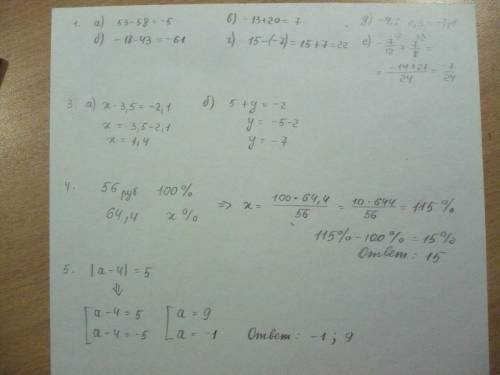 1. а) 53-58=-5 в) -13+20=7 д)
б) -18-43=-61 г) 15-(-7)=15+7=22 е) -7/12 + 7/8 =
= -14+21/24 = -7/24
3. а) x-3,5=-2,1 б) 5+y=-2
x = 3,5-2,1 y = -5-2
x = 1,4 y = -7
4. 56 руб 100%
64,4 x% => x = 100·64,4/56 = 10·644/56 = 115%
115%-100%=15%
Ответ: 15
5. |a-4|=5
⇓
[a-4=5 [a=9
[a-4=-5 [a=-1 Ответ: -1; 9